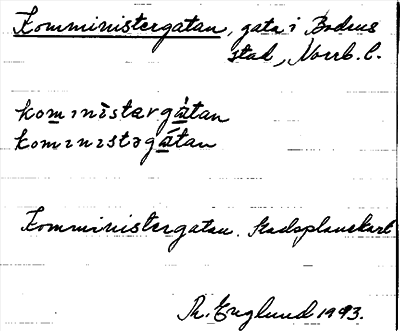 Komministergatan, gata i Bodens
stad, Norrb. l.
komınìstərgátan
komınıstəgátan
Komministergatan. Stadsplanekart
Th. Englund 1943.